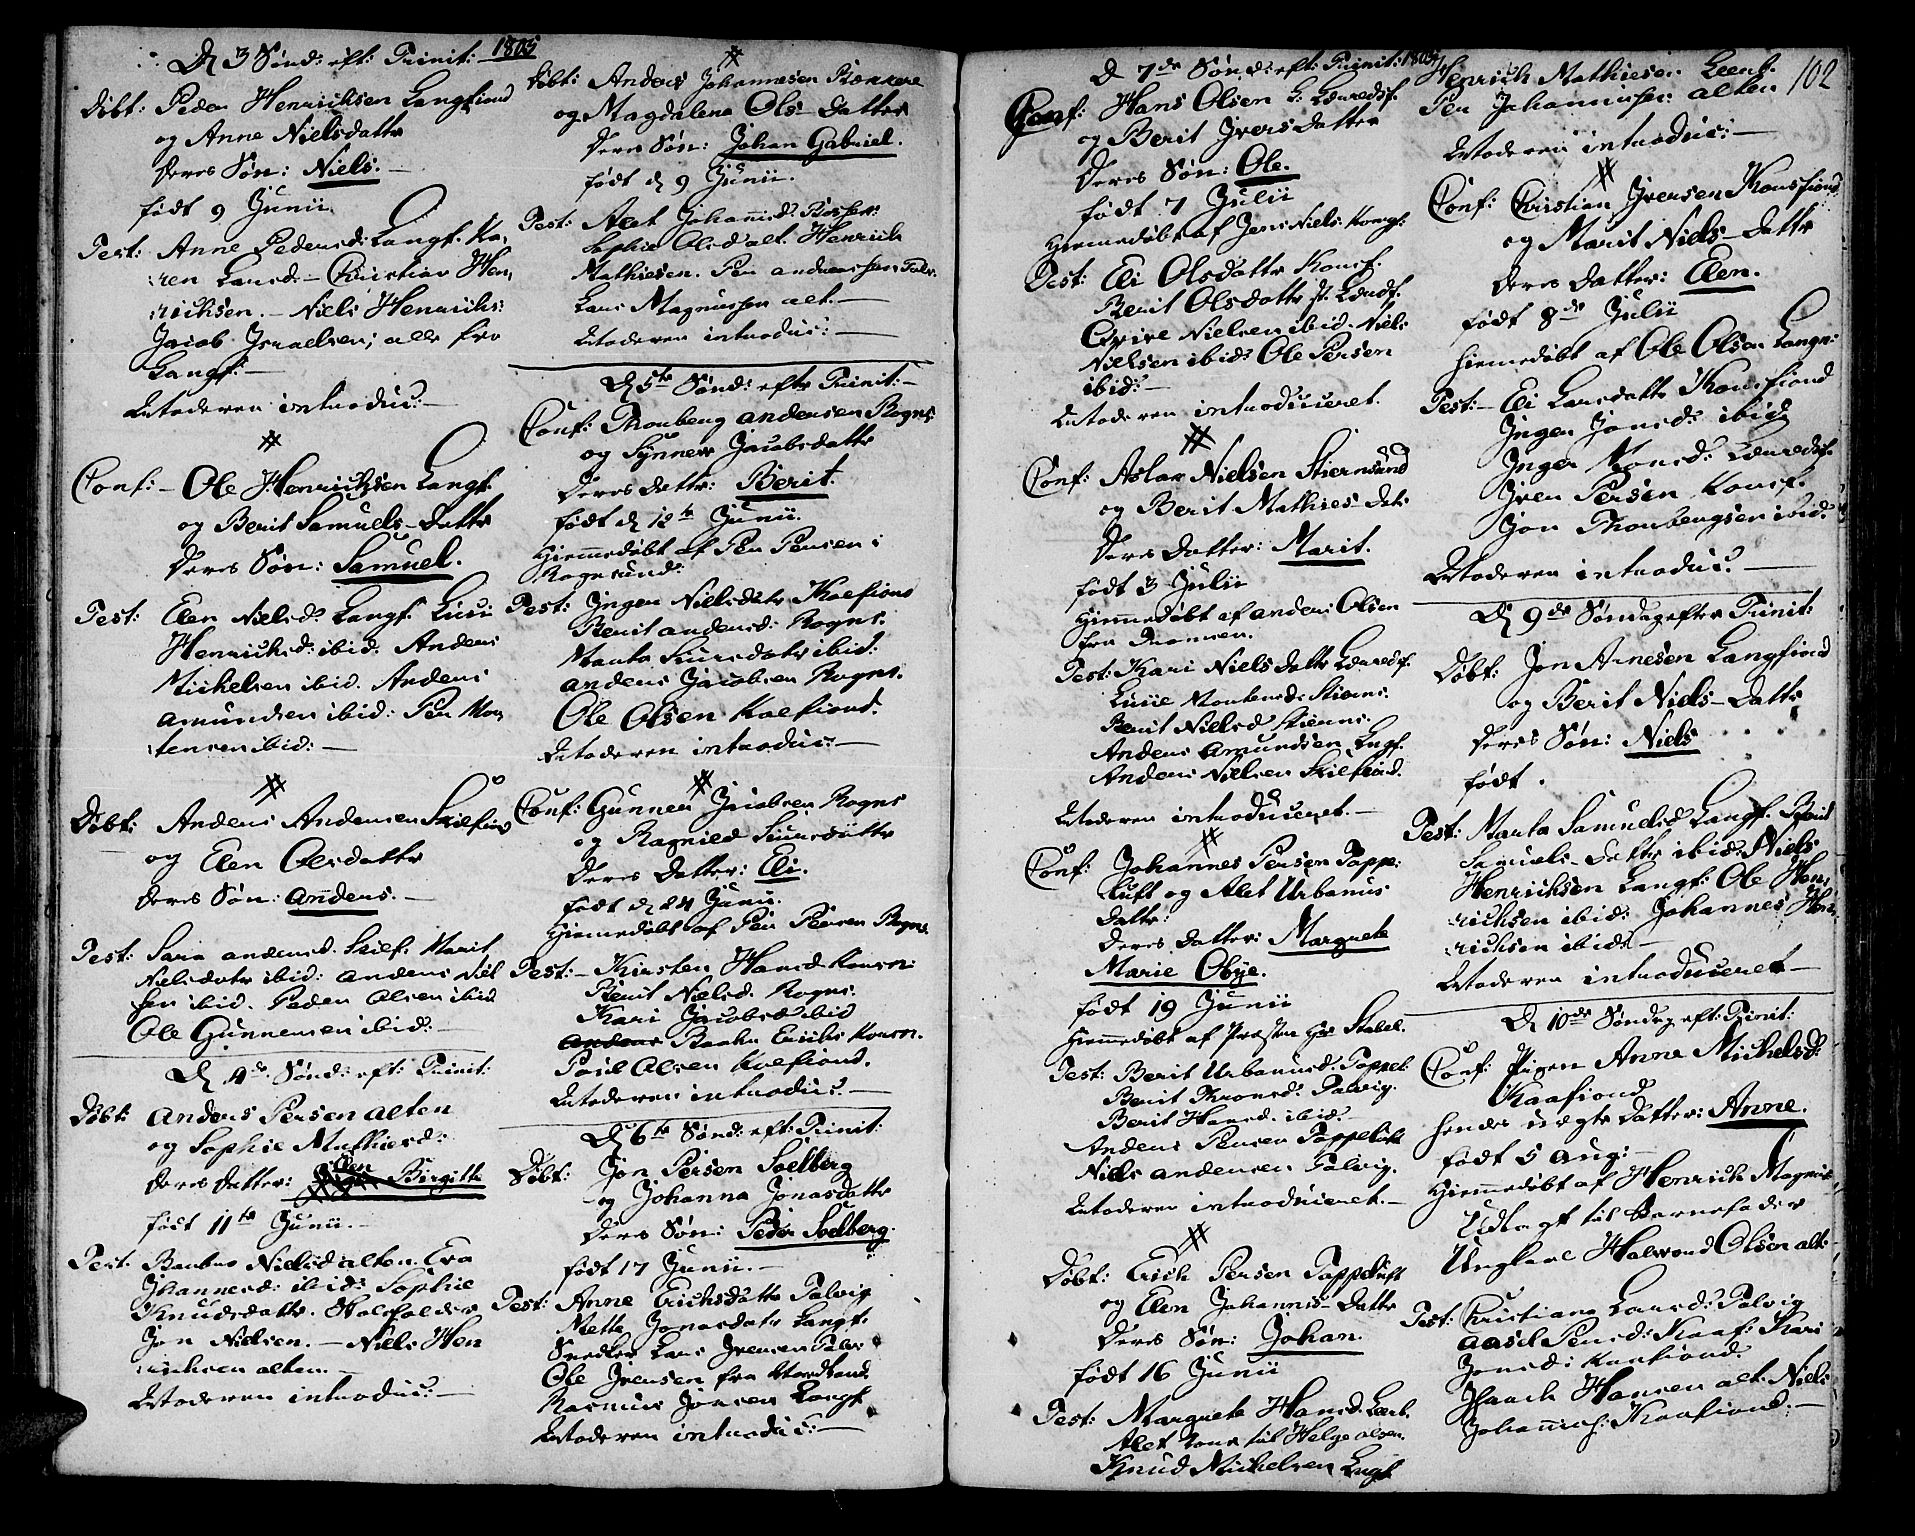 D 3 Sønd: eft: Trinit: 1803
Døbt: Peder Henrichsen Langfiord
og Anne Nielsdattr
Deres Søn: Niels. —
født 9 Junii
Test: Anne Pedersd: Langf. Ka-
ren Larsd: — Christian Hen-
richsen. — Niels Henrichs:
Jacob Israelsen; alle fra
Langf: —
Moderen introduc: —
Conf: — Ole Henrichsen Langf.
og Berit Samuels-Dattr
Deres Søn: Samuel.
Test: Elen Nielsd: Langf. Lisii
Henrichsd: ibid: Anders
Michelsen ibid. Anders
Amundsen ibid: Per Mor-
tensen ibid: —
Døbt: Anders Andersen Skilfiord
og Elen Olsdattr
Deres Søn: Anders. —
Test: Sara Andersd. Skilf. Marit
Nielsdatr ibid: Anders Niel-
sen ibid. Peder Olsen ibid
Ole Gunnersen ibid: —
D 4de Sønd: eft: Trinit:
Døbt: Anders Persen Alten
og Sophie Mathiesd:
Deres Datter: Elen Birgitte
født 11te Junii. —
Test: Barbro Nielsd Alten. Eva
Johannesd: ibid: Sophie
Knudsdattr.
Jon Nielsen. — Niels Hen-
richsen Alten. —
Moderen introduc: —
Døbt: Anders Johannesen
og Magdalena Ols-Datter
Deres Søn: Johan Gabriel.
født d 9 Junii.
Test: Alet Johannisd:
Sophie Olsd Alt. Henrich
Mathiesen. Per Anderssen Talv:
Lars Magnussen Alt. —
Moderen introduc: —
D 5te Sønd: eftr Trinit: —
Conf: Thorberg Andersen Rogns:
og Synneve Jacobsdattr
Deres Dattr: Berit.
født d 12te Junii.
Hiemmedøbt af Per Persen i
Rognsund:
Test: Inger Nielsdatr Koefiord
Berit Andersd: Rogns.
Marta Siursdatr ibid:
Anders Jacobsen Rogns.
Ole Olsen Koefiord.
Moderen introduc: —
Conf: Gunner Jacobsen Rogns
og Ragnild Siursdattr
Deres Datter: Eli.
født d 24 Junii.
Hiemmedøbt af Per Persen Rogns.
Test: — Kirsten Hansd
Berit Nielsd. Rogns.
Kari Jacobsd ibid
Anders
Poul Olsen Koefiord.
Moderen introduc: —
D 6te Sønd: eft: Trinit:
Døbt: Jon Persen Soelberg
og Johanna Jonasdattr
Deres Søn: Peder Soelberg.
født 17 Junii. —
Test: Anne Erichsdattr Talvig
Mette Jonasdatr Langf.
Snedker Lars Iversen Talv:
Ole Iversen fra
Rasmus Jonsen Langf
Moderen introduc: —
D 7de Sønd: eft: Trinit: 1803
Conf: Hans Olsen L: Leeredsf.
og Berit Iversdatter
Deres Søn: Ole.
født 7 Julii
Hiemmedøbt af Jens Niels. Kongs:
Test: Eli Olsdattr Konsf.
Berit Olsdattr
Nielsen ibid. Niels
Nielsen ibid: Ole Persen
ibid: —
Moderen introduceret.
Conf: Aslac Nielsen Stiernsund
og Berit Mathies-Dat:
Deres Datter: Marit.
født 3 Julii
Hiemmedøbt af Anders Olsen
fra
Test: Kari Nielsdattr Leeredsf.
Lisii Mortensd: Stierns:
Berit Nielsd Stierns:
Anders Amundsen Langf.
Anders Nielsen Skilfiord.
Moderen introduceret. —
Conf: Johannes Persen Poppe-
luft og Alet Urbanus
Dattr:
Deres Datter: Margrete
Marie Obye.
født 19 Junii
Hiemmedøbt af Præsten Hr
Test: Berit Urbanusd. Poppel:
Berit Thronsd. Talvig.
Berit Hansd. ibid:
Anders Persen Poppeluft
Niels Andersen Talvig.
Moderen introduceret. —
Døbt: Erich Persen Poppeluft
og Elen Johannis-Datter
Deres Søn: Johan.
født 16 Junii
Test: Margrete Hansd: Leerb.
Alet Kone til Helge Olsen.
Knud Michelsen Langf
102
Henrich Mathiesen Leerb.
Per Johannissen Alten
Moderen introduc: —
Conf: Christian Iversen Konsfiord
og Marit Niels-Dattr
Deres Datter: Elen.
født 8de Julii
Hiemmedøbt af Ole Olsen Langn:
Test: — Eli Larsdattr Konsfiord
Inger Jonsd: ibid
Inger Monsd: Leeredsf.
Iver Persen Konsf.
Jon Thorbergsen ibid:
Moderen introduc: —
D 9de Søndag efter Trinit:
Døbt: Jon Arnesen Langfiord
og Berit Niels-Dattr
Deres Søn: Niels
født .
Test: Marta Samuelsd Langf. Berit
Samuels-Dattr ibid: Niels
Henrichsen Langf: Ole Hen-
richsen ibid: Johannes Hen-
richsen ibid: —
Moderen introduceret —
D 10de Søndag eft: Trinit:
Conf: Pigen Anne Michelsd:
Kaafiord
hendes uægte Datter: Anne.
født 5 Aug: —
Hiemmedøbt af Henrich Magnus-
Udlagt til Barnefader
Ungkarl Halvord Olsen Alt:
Test: Christiana Larsd: Talvig
Aasel Persd: Kaaf: Kari
Jonsd: Kaafiord.
Isaach Hansen Alt. Niels
Johannis: Kaafiord. —